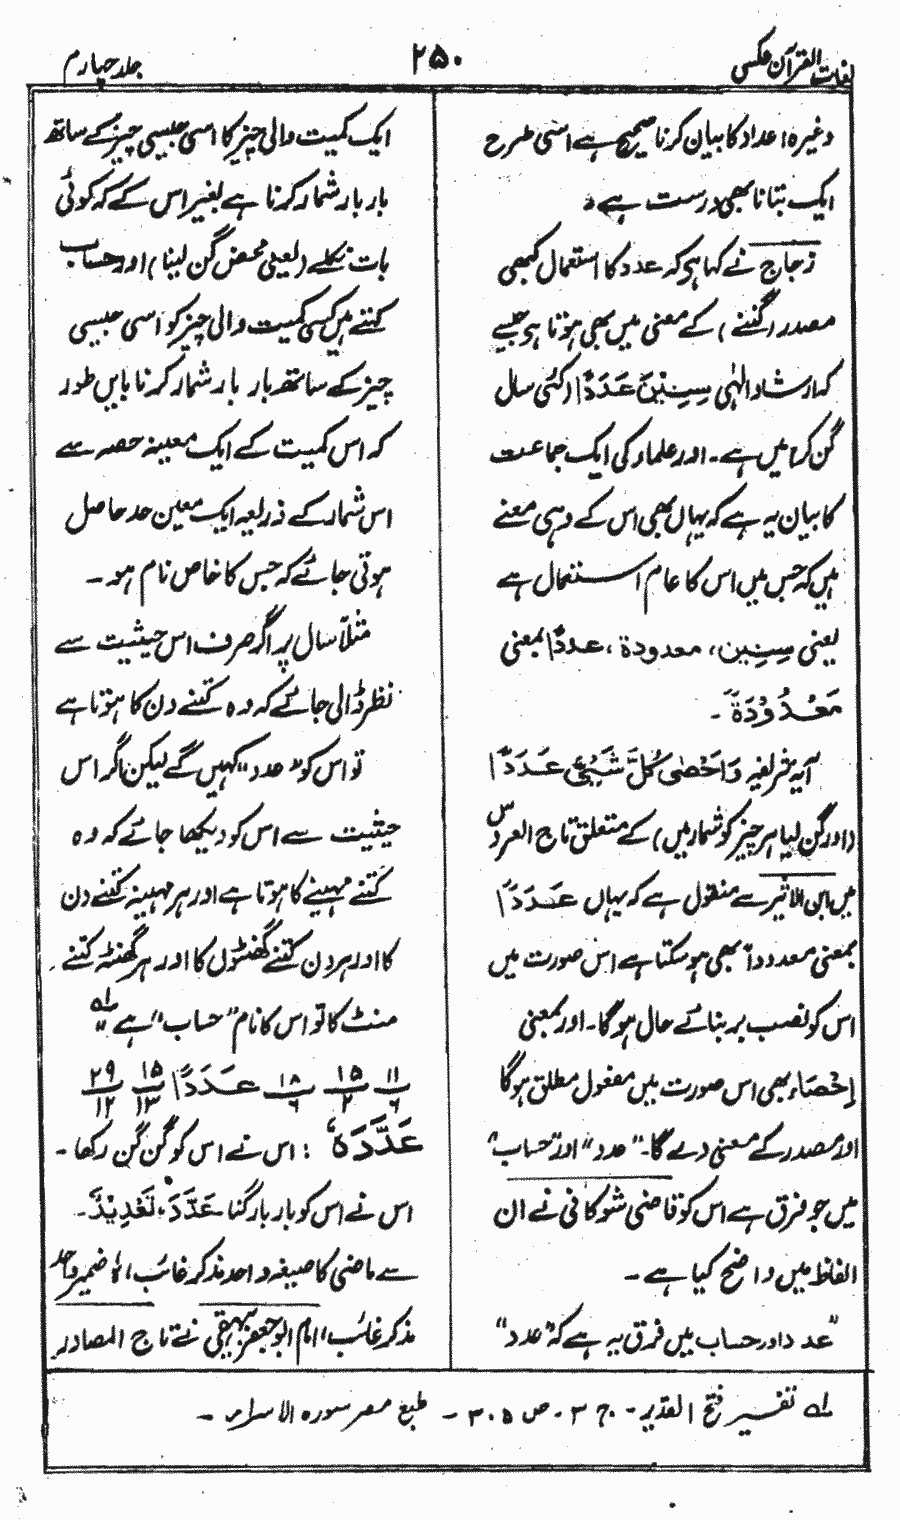 لغات القرآن عکسی
۲۵۰
جلد چہارم
وغیرہ اعداد کا بیان کرنا صحیح ہے اسی طرح
ایک بتانا بھی درست ہے ۔
زجاج نے کہا ہی کہ عدد کا استعمال کبھی
مصدر (گننے) کے معنی میں بھی ہوتا ہی جیسے
کہ ارشاد الٰہی سِنِیْنَ عَدَدًا (کئی سال
گن کر) میں ہے۔ اور علماء کی ایک جماعت
کا بیان یہ ہے کہ یہاں بھی اس کے وہی معنے
ہیں کہ جس میں اس کا عام استعمال ہے
یعنی سِنِین، معدودة، عددًا بمعنی
مَعْدُوْدَةً ۔
آیہ شریفہ وَاَحْصٰی کُلَّ شَیْئٍ عَدَدًا
(اور گن لیا ہر چیز کو شمار میں) کے متعلق تاج العروس
میں ابن الاثیر سے منقول ہے کہ یہاں عَدَدًا
بمعنی معدوداً بھی ہو سکتا ہے اس صورت میں
اس کو نصب بر بنائے حال ہو گا۔ اور بمعنی
اِحْصَاء بھی اس صورت میں مفعول مطلق ہو گا
اور مصدر کے معنی دے گا۔ "عدد" اور "حساب"
میں جو فرق ہے اس کو قاضی شوکانی نے ان
الفاظ میں واضح کیا ہے ۔
"عدد اور حساب میں فرق یہ ہے کہ "عدد"
ایک کمیت والی چیز کا اسی جیسی چیز کے ساتھ
بار بار شمار کرنا ہے بغیر اس کے کہ کوئی
بات نکلے (یعنی محض گن لینا) اور حساب
کتنے میں کسی کمیت والی چیز کو اسی جیسی
چیز کے ساتھ بار بار شمار کرنا بایں طور
کہ اس کمیت کے ایک معینہ حصہ سے
اس شمار کے ذریعہ ایک معین حد حاصل
ہوتی جائے کہ جس کا خاص نام ہو ۔
مثلاً سال پر اگر صرف اس حیثیت سے
نظر ڈالی جائے کہ وہ کتنے دن کا ہوتا ہے
تو اس کو "عدد" کہیں گے لیکن اگر اس
حیثیت سے اس کو دیکھا جائے کہ وہ
کتنے مہینے کا ہوتا ہے اور ہر مہینہ کتنے دن
کا اور ہر دن کتنے گھنٹوں کا اور ہر گھنٹہ کتنے
منٹ کا تو اس کا نام "حساب" ہے" لہ
عَدَدًا ۱۱/۶ ۱۵/۲ ۱۸/۶ ۱۵/۱۳ ۲۹/۱۲
عَدَّدَهٗ : اس نے اس کو گن گن رکھا ۔
اس نے اس کو بار بار گنا عَدَّدَ، تَعْدِیْدٌ ۔
سے ماضی کا صیغہ واحد مذکر غائب، ہٗ ضمیر واحد
مذکر غائب، امام ابو جعفر بیہقی نے تاج المصادر
لہ تفسیر فتح القدیر۔ ج ۳ ۔ ص ۳۰۵ ۔ طبع مصر سورہ الاسراء ۔